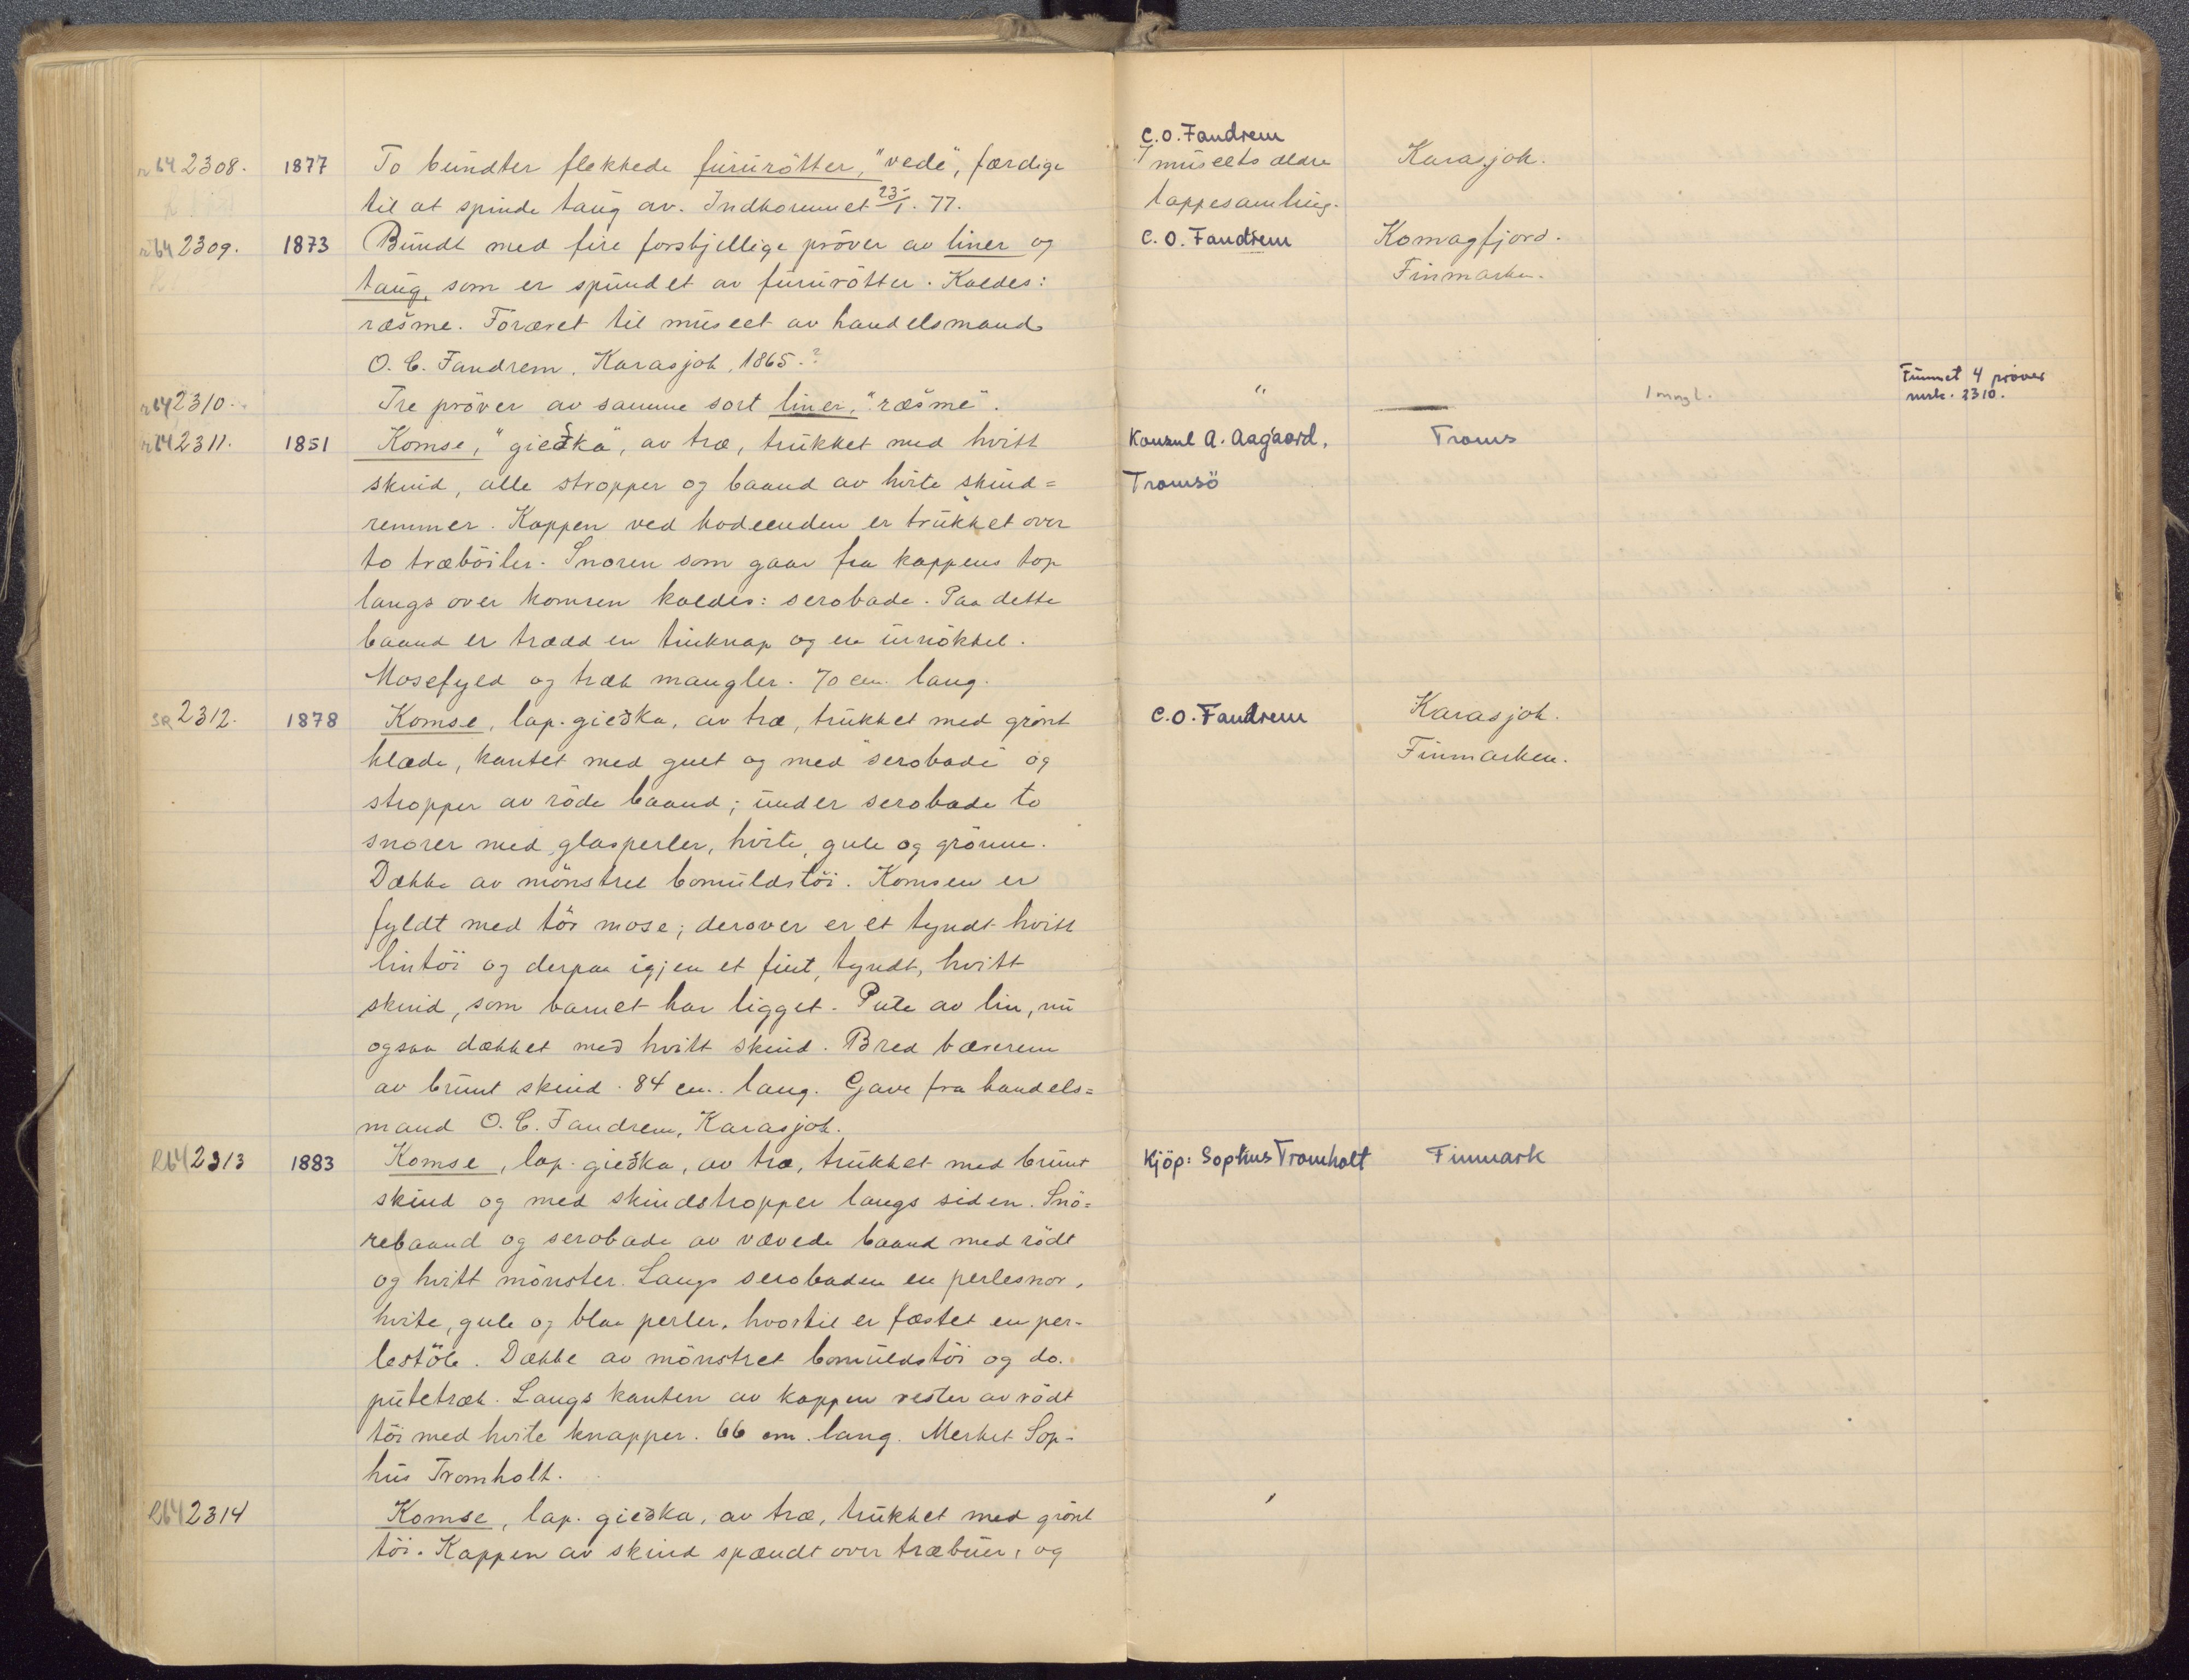 C.O. Fandrem
r64 2308. 1877 To bundter flekkede fururøtter, "vede", færdige museets ældre Karasjok.
til at spinde taug av. Indkommet 23/1. 77. lappesamling.
r64 2309. 1873 Bundt med fire forskjellige prøver av liner og C.O. Fandrem Komagfjord.
taug, som er spundet av fururøtter. Kaldes: Finmarken.
ræšme. Foræret til museet av handelsmand
O. C. Fandrem, Karasjok, 1865.?
r64 2310. Tre prøver av samme sort liner, "ræšme". " — 1 mngl. Funnet 4 prøver
mrk. 2310.
r64 2311. 1851 Komse, "gieška", av træ, trukket med hvitt Konsul A. Aagaard, Troms
skind, alle stropper og baand av hvite skind= Tromsö
remmer. Kappen ved hodeenden er trukket over
to træbøiler. Snoren som gaar fra kappens top
langs over komsen kaldes: serobade. Paa dette
baand er trædd en tinknap og en urnøkkel.
Mosefyld og træk mangler. 70 cm. lang.
SR 2312. 1878 Komse, lap. gieška, av træ, trukket med grønt C.O. Fandrem Karasjok.
klæde, kantet med gult og med "serobade" og Finmarken.
stropper av røde baand; under serobade to
snorer med glasperler, hvite, gule og grønne.
Dække av mønstret bomuldstøi. Komsen er
fyldt med tör mose; derover er et tyndt hvitt
lintøi og derpaa igjen et fint, tyndt, hvitt
skind, som barnet har ligget. Pute av lin, nu
ogsaa dækket med hvitt skind. Bred bærerem
av brunt skind. 84 cm. lang. Gave fra handels=
mand O. C. Fandrem, Karasjok.
R64 2313 1883 Komse, lap. gieška, av træ, trukket med brunt Kjöp: Sophus Tromholt Finmark
skind og med skindstropper langs siden. Snø=
rebaand og serobade av vævede baand med rødt
og hvitt mønster. Langs serobaden en perlesnor,
hvite, gule og blaa perler, hvortil er fæstet en per-
lestöb. Dække av mønstret bomuldstøi og do.
putetræk. Langs kanten av kappen rester av rødt
tøi med hvite knapper. 66 cm. lang. Merket Sop-
hus Tromholt.
R64 2314 Komse, lap. gieška, av træ, trukket med grønt
tøi. Kappen av skind spændt over træbuer, og